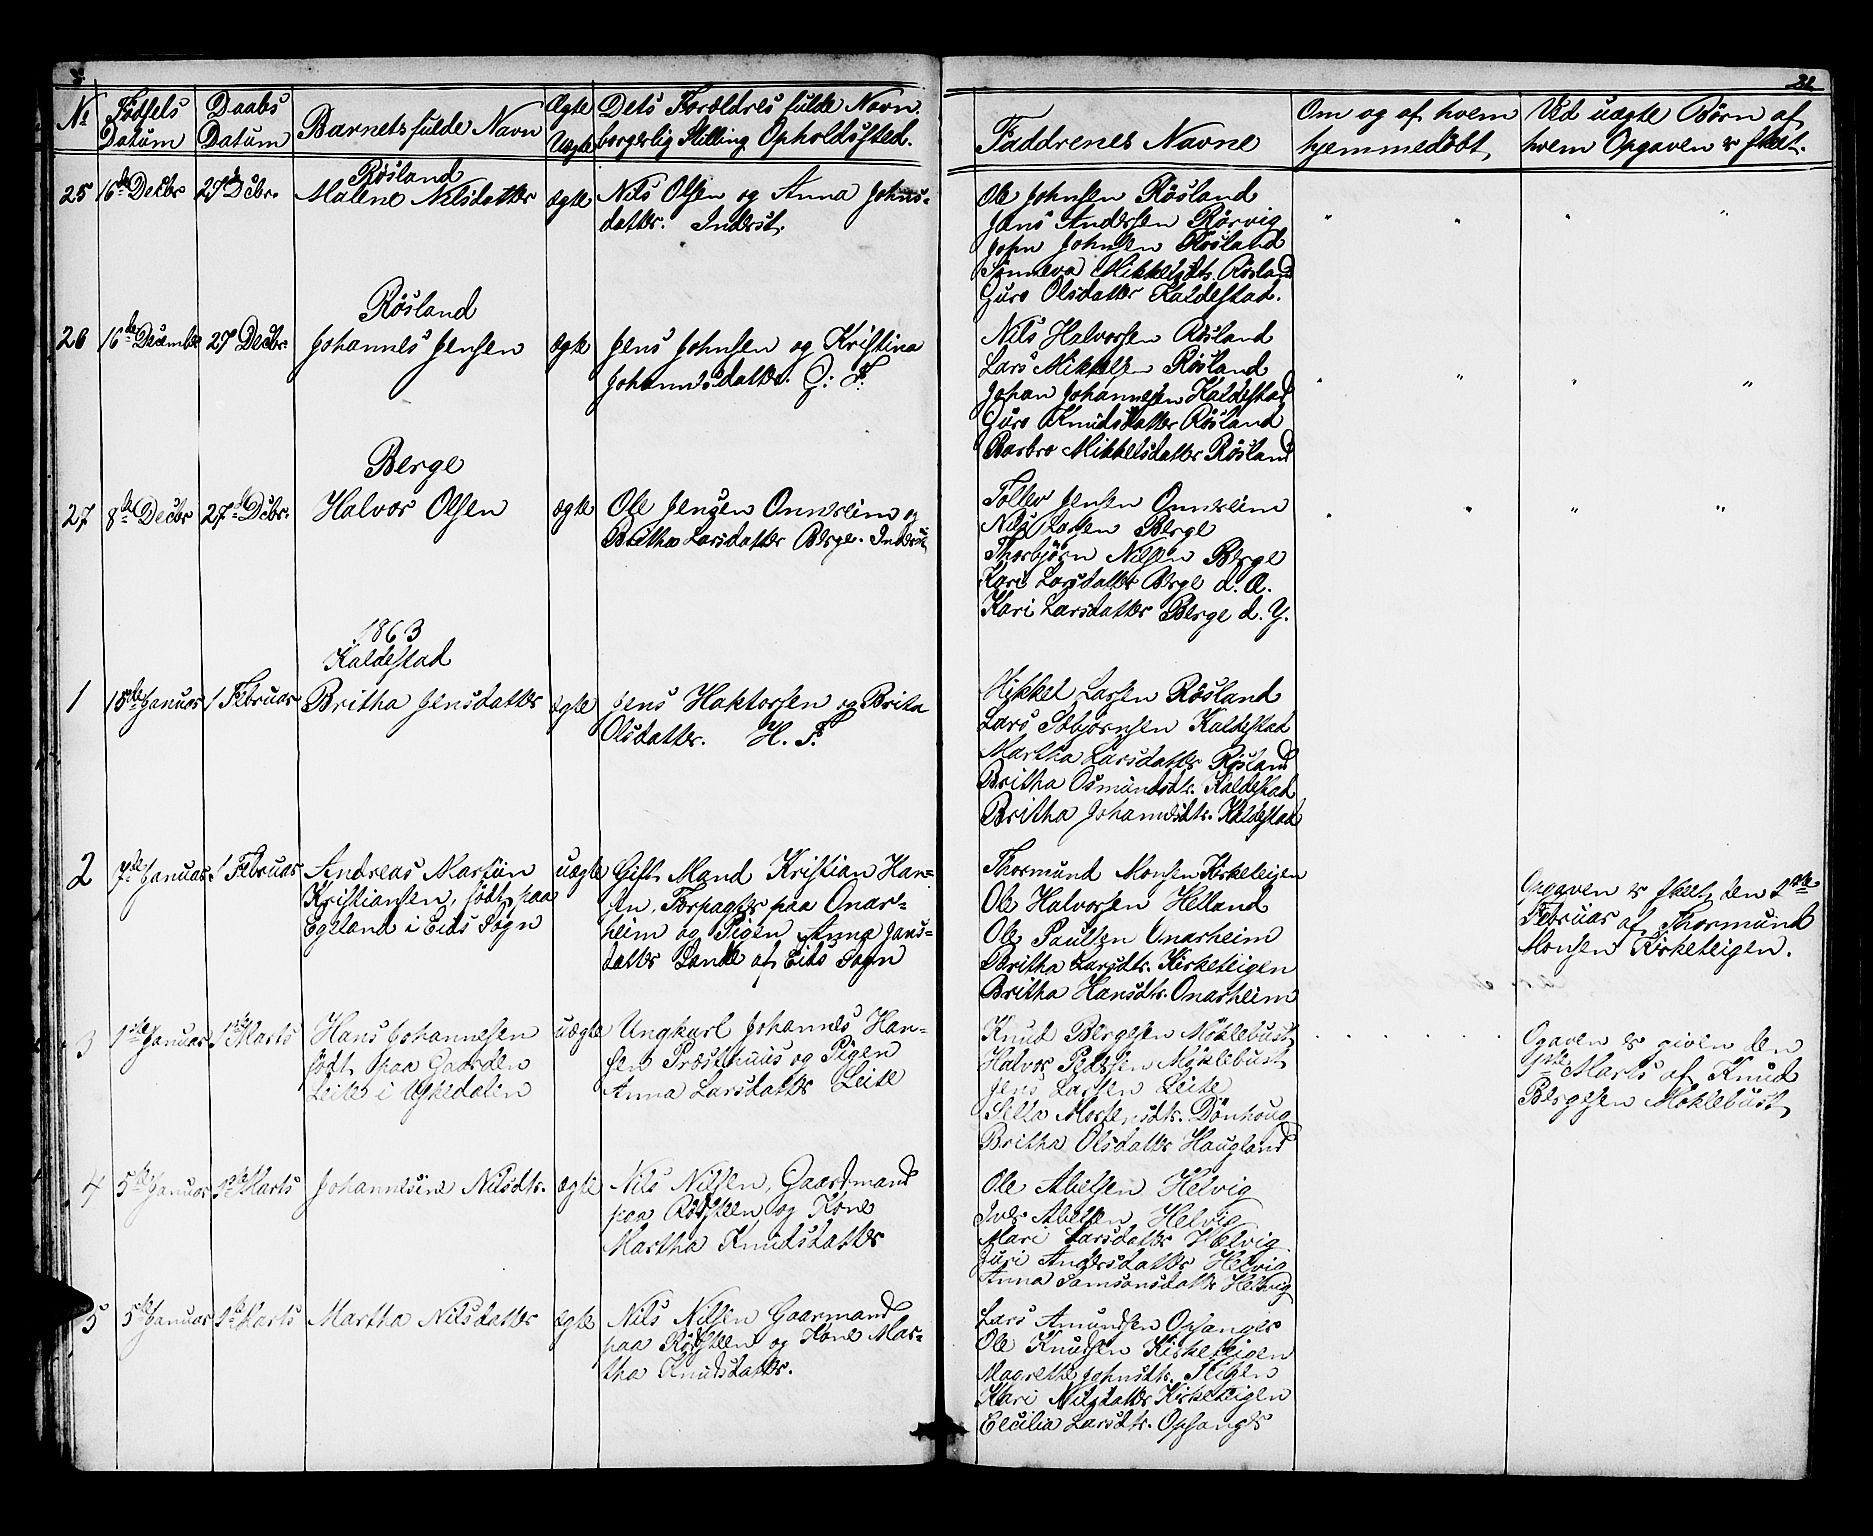 32
No Fødsels Daabs Barnets fulde Navn Ægte Dets Forældres fulde Navn
Datum Datum Uægte borgerlig Stilling Opholdssted.
Faddrenes Navne
Om og af hvem
hjemmedøbt
Ved uægte Børn af
hvem Opgaven er skeet.
Røsland
25 16de Decbr 27de Dcbr. Malene Nilsdatter ægte Nils Olsen og Anna Johns-
datter. Inderst.
Ole Johnsen Røsland
Jens Andersen Rørvig
John Johnsen Røsland
Sønneva Mikkelsdt. Røsland
Guro Olsdatter Kaldestad.
Røsland
26 16de December 27de Decbr. Johannes Jensen ægte Jens Johnsen og Kristina
Johannisdatter. G: F:
Nils Halvorsen Røsland
Lars Mikkelsen Røsland
Johan Johannesen Kaldestad
Guro Knudsdatter Røsland
Barbro Mikkelsdatter Røsland
Berge
27 8de Decbr 27de Dcbr. Halvor Olsen ægte Ole Jensen Onnreim og
Britha Larsdatter Berge. Inderst
Tollev Jensen Onnreim
Nils Larsen Berge
Thorbjørn Nilsen Berge
Kari Larsdatter Berge d. Æ.
Kari Larsdatter Berge d. Y.
1863
Kaldestad
1 18de Januar 1 Februar Britha Jensdatter ægte Jens Haktorsen og Brita
Olsdatter. H. F:
Mikkel Larsen Røsland
Lars Æsbjørnsen Kaldestad
Martha Larsdatter Røsland
Britha Osmundsdt. Kaldestad
Britha Johannisdt. Kaldestad
2 7de Januar 1 Februar Andreas Martin uægte Gift Mand Kristian Han-
Kristiansen, født paa sen, Forpagter paa Onar-
Egeland i Eids Sogn heim og Pigen Anna Jans-
datter Lande af Eids Sogn
Thormund Monsen Kirketeigen
Ole Halvorsen Helland
Ole Paulsen Onarheim
Britha Larsdtr. Kirketeigen
Britha Hansdtr. Onarheim
Opgaven er skeet den 2den
Februar af Thormund
Monsen Kirketeigen.
3 1ste Januar 1ste Marts Hans Johannesen uægte Ungkarl Johannes Han-
født paa Gaarden sen Præsthuus og Pigen
Leite i Uskedalen Anna Larsdatter Leite
Knud Bergesen Møklebust
Halvor Pedersen Møklebust
Jens Larsen Leite
Silla Mortensdtr. Dønhoug
Britha Olsdatter Haugland
Ogaven er given den
1ste Marts af Knud
Bergesen Møklebust
4 5te Januar 1ste Marts Johannesine Nilsdtr. ægte Nils Nilsen, Gaardmand
paa Rødsteen og Kone
Martha Knudsdatter
Ole Abelsen Helvig
Iver Abelsen Helvig
Mari Larsdatter Helvig
Guri Andersdatter Helvig
Anna Samsonsdatter Helvig
5 5te Januar 1ste Marts Martha Nilsdatter ægte Nils Nilsen Gaarmand
paa Rødsteen og Kone Mar-
tha Knudsdatter.
Lars Amundsen Opsanger
Ole Knudsen Kirketeigen
Magrethe Johnsdtr. Stigen
Kari Nilsdatter Kirketeigen
Cecilia Larsdtr. Opsanger